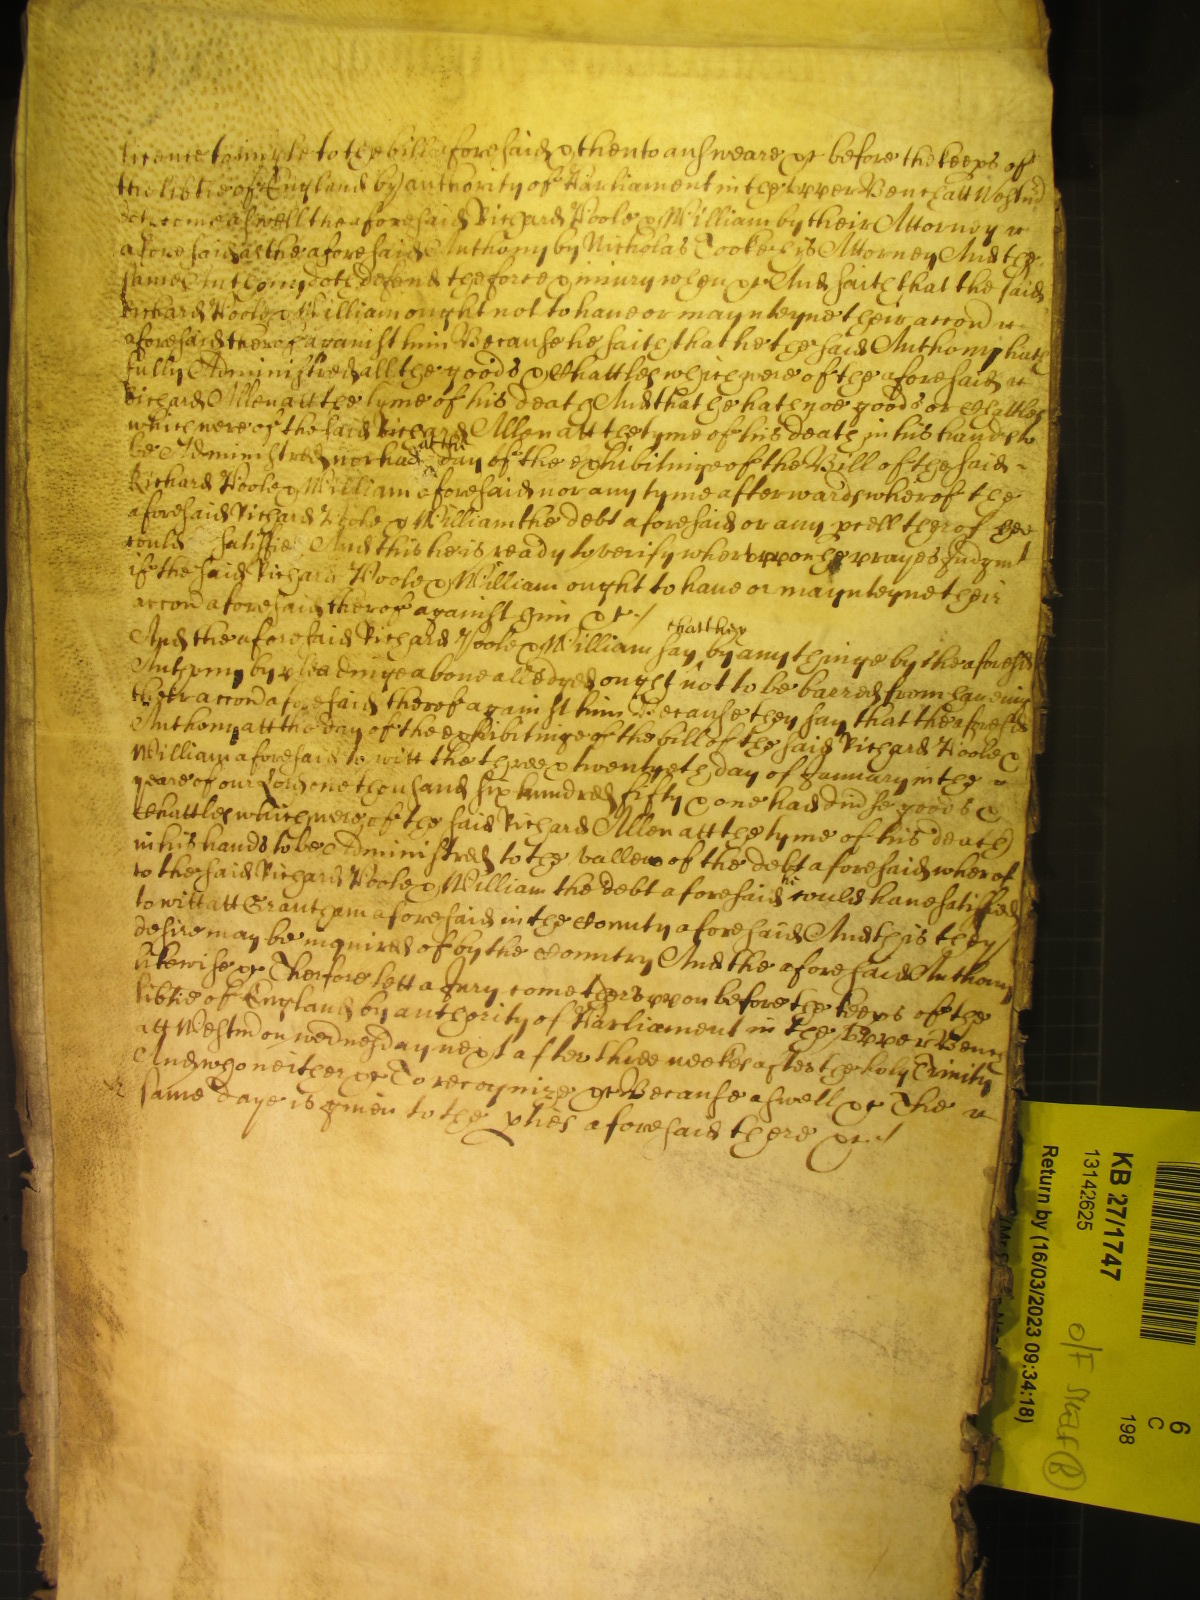 licence to imple to the bill aforesaid & then to answeare &c before the keeps of
the libtie of England by authority of Parliament in the Upper Bench att Westmd
doe come aswell the aforesaid Richard Poole & William by their Attorney
aforesaid as the aforesaid Anthony by Nicholas Cooke his Attorney And the
same Anthony doth defend the force & iniury when &c And saith that the said
Richard Poole & William ought not to haue or maynteyne their accon
aforesaid therof against him Because he saith that he the said Anthony hath
fully Administred all the goods & Chattles which were of the aforesaid
Richard Allen att the tyme of his death And that he hath noe goods or Chattles
which were of the said Richard Allen att the tyme of his death in his hands to
be Administred nor had att the day of the exhibitinge of the Bill of the said
Richard Poole & William aforesaid nor any tyme afterwards wherof the
aforesaid Richard Poole & William the debt aforesaid or any pcell therof hee
could satisfie And this he is ready to verify wherevppon he prayes Judgmt
if the said Richard Poole & William ought to haue or maynteyne their
accon aforesaid therof against him &c /
And the aforesaid Richard Poole & William say by any thinge by the aforesd
chatt they
Anthony by pleadinge aboue alledged ought not to be barred from haueing
their accon aforesaid therof against him Because they say that the aforesd
Anthony att the day of the exhibitinge of the bill of the said Richard Poole &
William aforesaid to witt the three & twentyeth day of January in the
yeare of our Lord one thousand six hundred fifty & one had diuse goods &
Chattles which were of the said Richard Allen att the tyme of his death
in his hands to be Administred to the vallew of the debt aforesaid wherof
to the said Richard Poole & William the debt aforesaid he could haue satisfied
to witt att Grantham aforesaid in the County aforesaid And this they
desire may be inquired of by the Countrey And the aforesaid Anthony
likewise &c Therfore lett a Jury come therevppon before the keeps of the
libtie of England by authority of Parliament in the Vpper Bench
att Westmd on wednesday next after three weekes after the holy Trinity
And who neither &c To recognize &c Because aswell &c The
same daye is giuen to the pties aforesaid there &c /
KB 27/1747
13142625
Return by (16/03/2023 09:34:18)
6
C
198